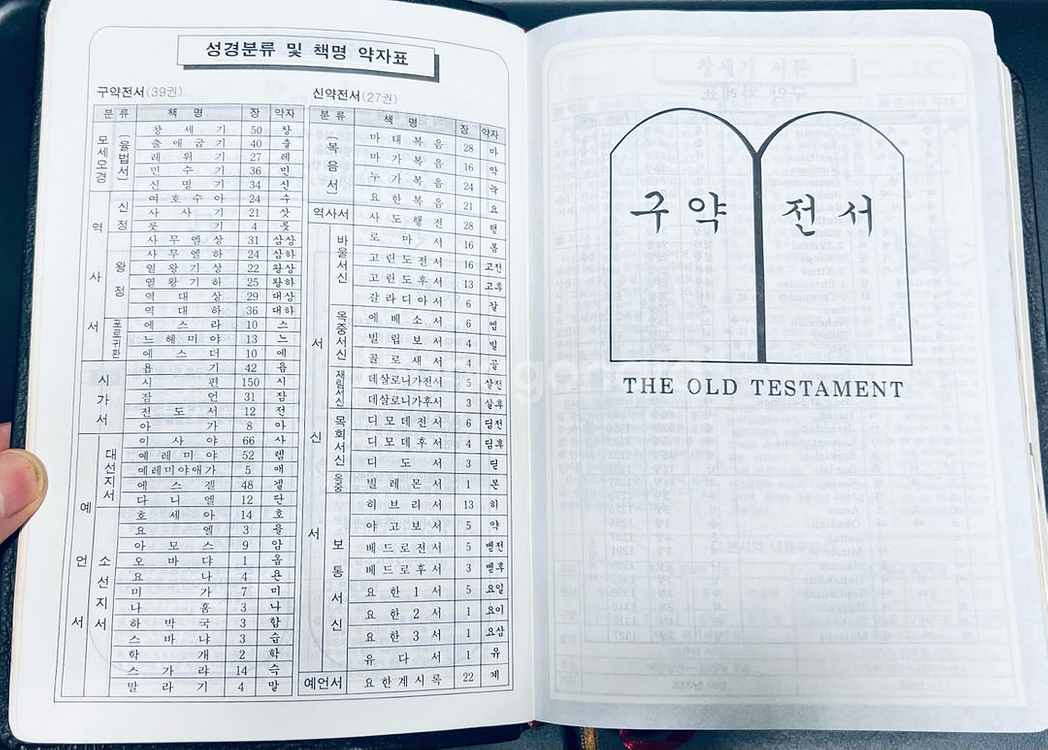 성경분류 및 책명 약자표
구약전서(39권)
분류 책명 장 약자
모세오경 (율법서)
창세기 50 창
출애굽기 40 출
레위기 27 레
민수기 36 민
신명기 34 신
역사서
신정
여호수아 24 수
사사기 21 삿
룻기 4 룻
왕정
사무엘상 31 삼상
사무엘하 24 삼하
열왕기상 22 왕상
열왕기하 25 왕하
역대상 29 대상
역대하 36 대하
포로귀환
에스라 10 스
느헤미야 13 느
에스더 10 에
시가서
욥기 42 욥
시편 150 시
잠언 31 잠
전도서 12 전
아가 8 아
예언서
대선지서
이사야 66 사
예레미야 52 렘
예레미야애가 5 애
에스겔 48 겔
다니엘 12 단
소선지서
호세아 14 호
요엘 3 욜
아모스 9 암
오바댜 1 옵
요나 4 욘
미가 7 미
나훔 3 나
하박국 3 합
스바냐 3 습
학개 2 학
스가랴 14 슥
말라기 4 말
신약전서(27권)
분류 책명 장 약자
복음서
마태복음 28 마
마가복음 16 막
누가복음 24 눅
요한복음 21 요
역사서 사도행전 28 행
서신서
바울서신
로마서 16 롬
고린도전서 16 고전
고린도후서 13 고후
갈라디아서 6 갈
옥중서신
에베소서 6 엡
빌립보서 4 빌
골로새서 4 골
재림서신
데살로니가전서 5 살전
데살로니가후서 3 살후
목회서신
디모데전서 6 딤전
디모데후서 4 딤후
디도서 3 딛
옥중 빌레몬서 1 몬
보통서신
히브리서 13 히
야고보서 5 약
베드로전서 5 벧전
베드로후서 3 벧후
요한1서 5 요일
요한2서 1 요이
요한3서 1 요삼
유다서 1 유
예언서 요한계시록 22 계
구약 전서
THE OLD TESTAMENT